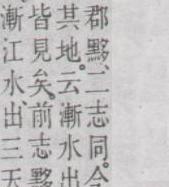 郡黟、二志同。今
其地。云漸水出
皆見矣。前志黟
漸江水、出三天